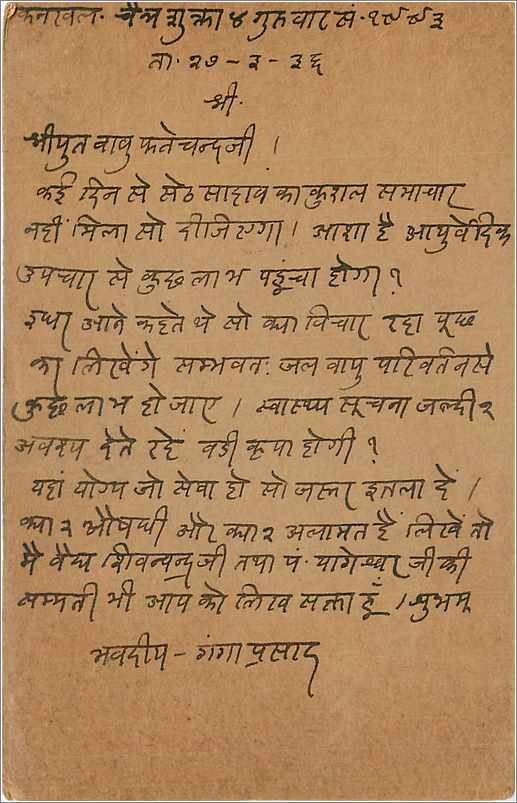 कनखल. चैत्र शुक्ला ४ गुरुवार सं. १९९३
ता. २७-३-३६
श्री.
श्रीयुत बाबु फतेचन्दजी ।
कई दिन से सेठ साहाब का कुशल समाचार
नहीं मिला सो दीजिएगा । आशा है आयुर्वेदिक
उपचार से कुछ लाभ पहूंचा होगा ?
इधर आने कहते थे सो क्या विचार रहा पूछ
कर लिखेंगे सम्भवत: जल वायु परिवर्तन से
कुछ लाभ हो जाए । स्वास्थ्य सूचना जल्दी २
अवश्य देते रहें बडी कृपा होगी ?
यहां योग्य जो सेवा हो सो जरूर इतला दें ।
क्या २ औषधी और क्या २ अलामत हैं लिखें तो
मै वैद्य शिवचन्द्रजी तथा पं. यागेश्वर जी की
सम्मती भी आप को लिख सक्ता हूँ । शुभम्
भवदीय - गंगा प्रसाद